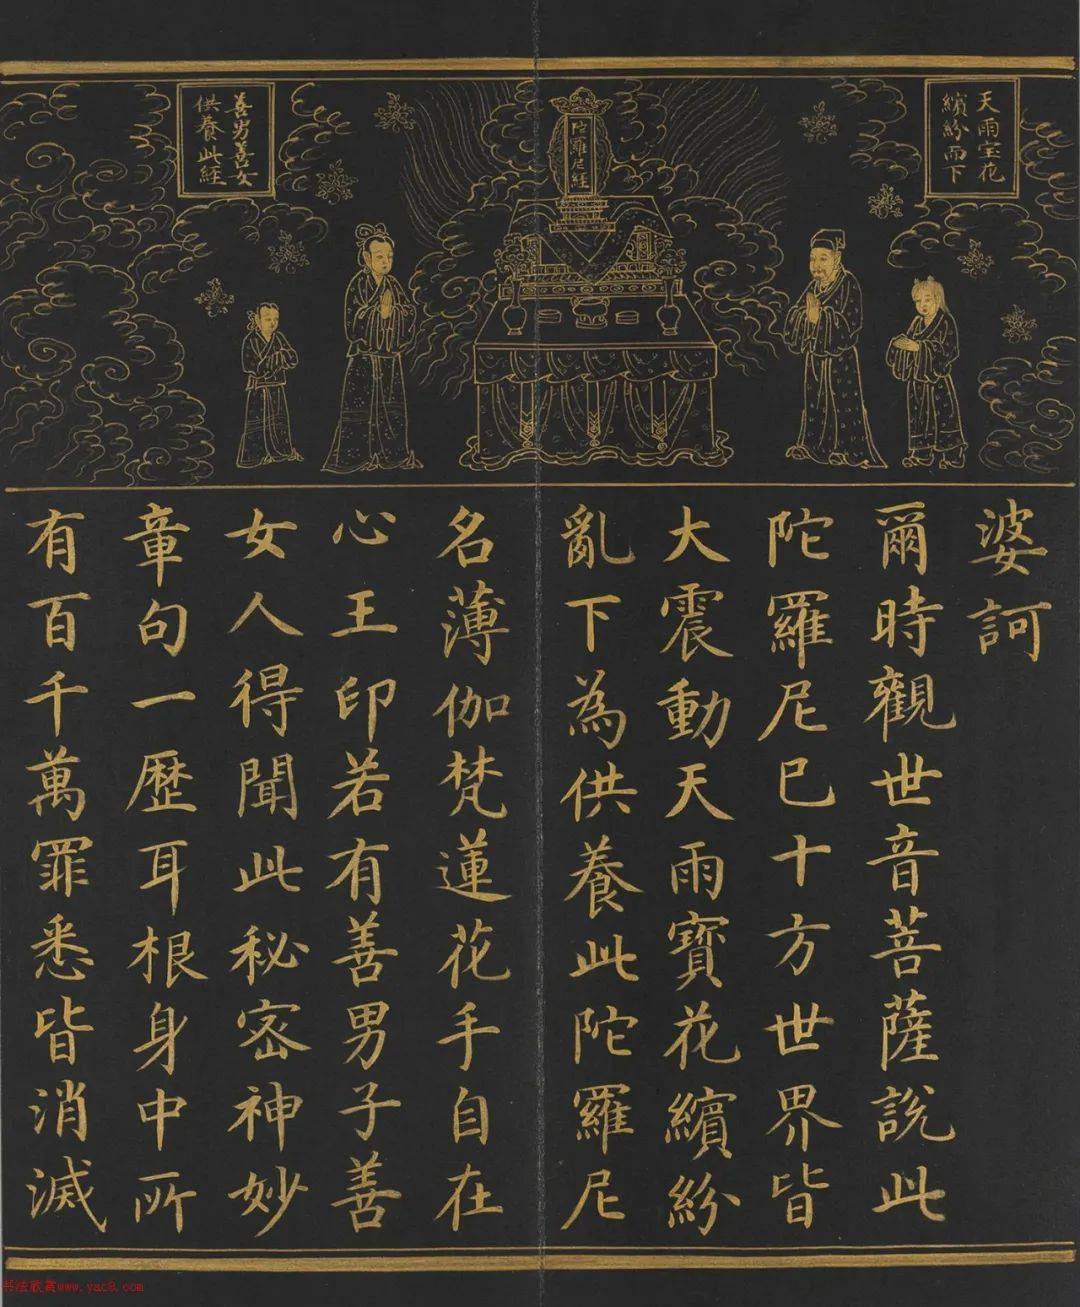 天雨宝花
繽紛而下
陀羅尼經
善男善女
供養此経
婆訶
爾時觀世音菩薩說此
陀羅尼已十方世界皆
大震動天雨寶花繽紛
亂下為供養此陀羅尼
名薄伽梵蓮花手自在
心王印若有善男子善
女人得聞此秘密神妙
章句一歷耳根身中所
有百千萬罪悉皆消滅
书法欣赏www.yac8.com